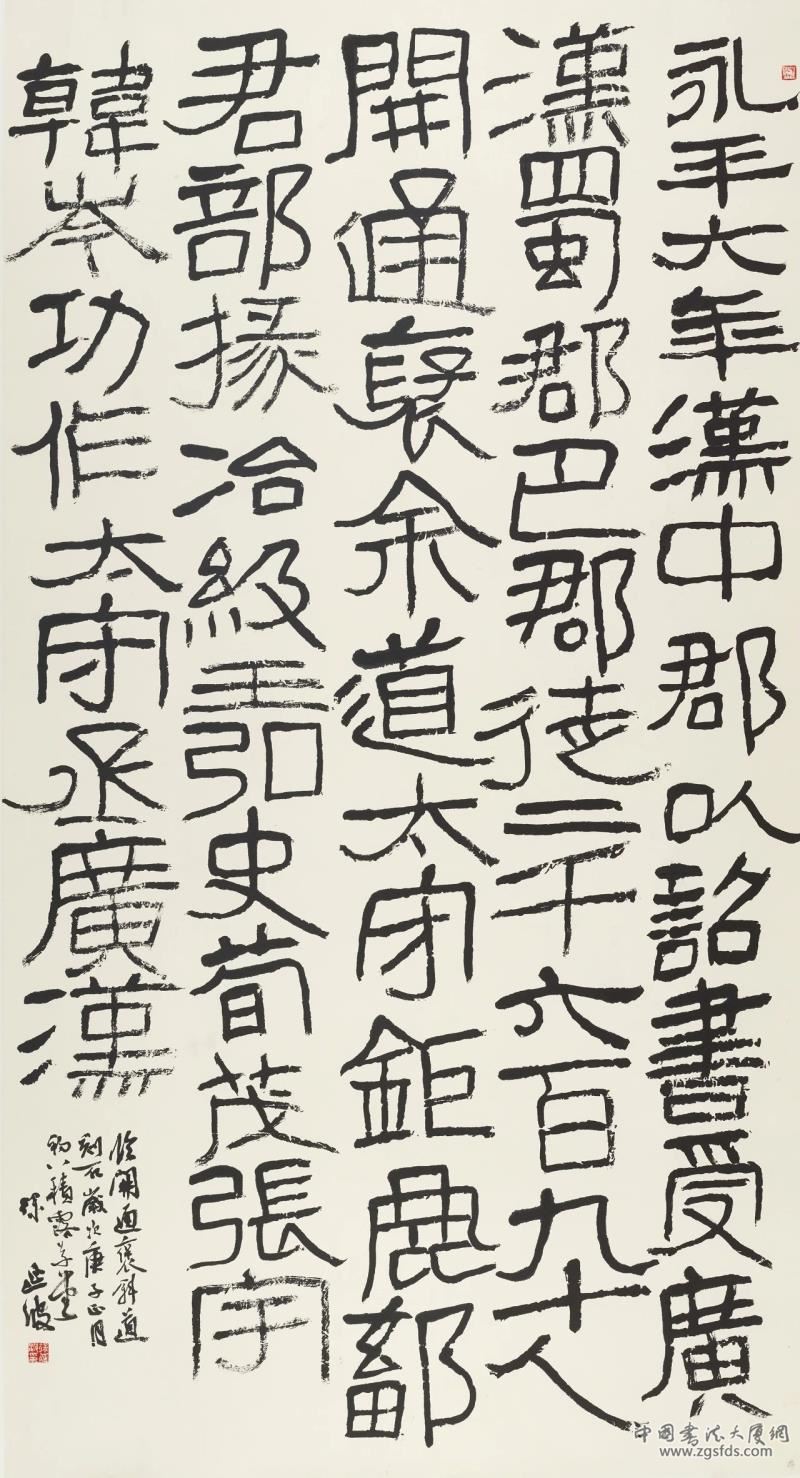 永平六年漢中郡以詔書受廣
漢蜀郡巴郡徒二千六百九十人
開通褒余道太守鉅鹿鄐
君部掾冶級王弘史荀茂張宇
韓岑功作太守丞廣漢
臨開通褒斜道
刻石歲次庚子正月
積露草堂
中国書法大厦網
www.zgsfds.com